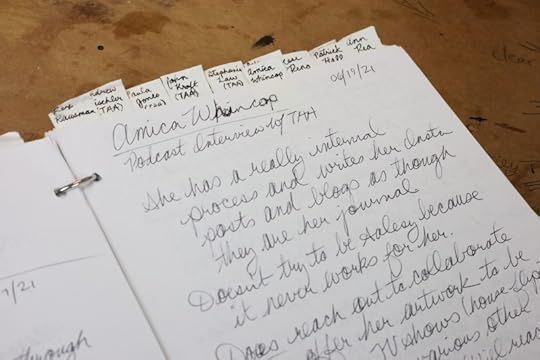 ndrew
ischler
(TAA)
John
Kraft
(TAA)
Stephanie
Law
(TAA)
amica
Whincop
Patrick
Hall
ann
Rea
06/19/21
Amica Whincop
Podcast Interview w/ TAA
She has a really internal
process and writes her Insta
posts and blogs as though
they are her journal
Doesnt try to be salesy because
it never works for her.
Does reach out to collaborate
after her artwork to be
shows (house flip
various other
1/21
through